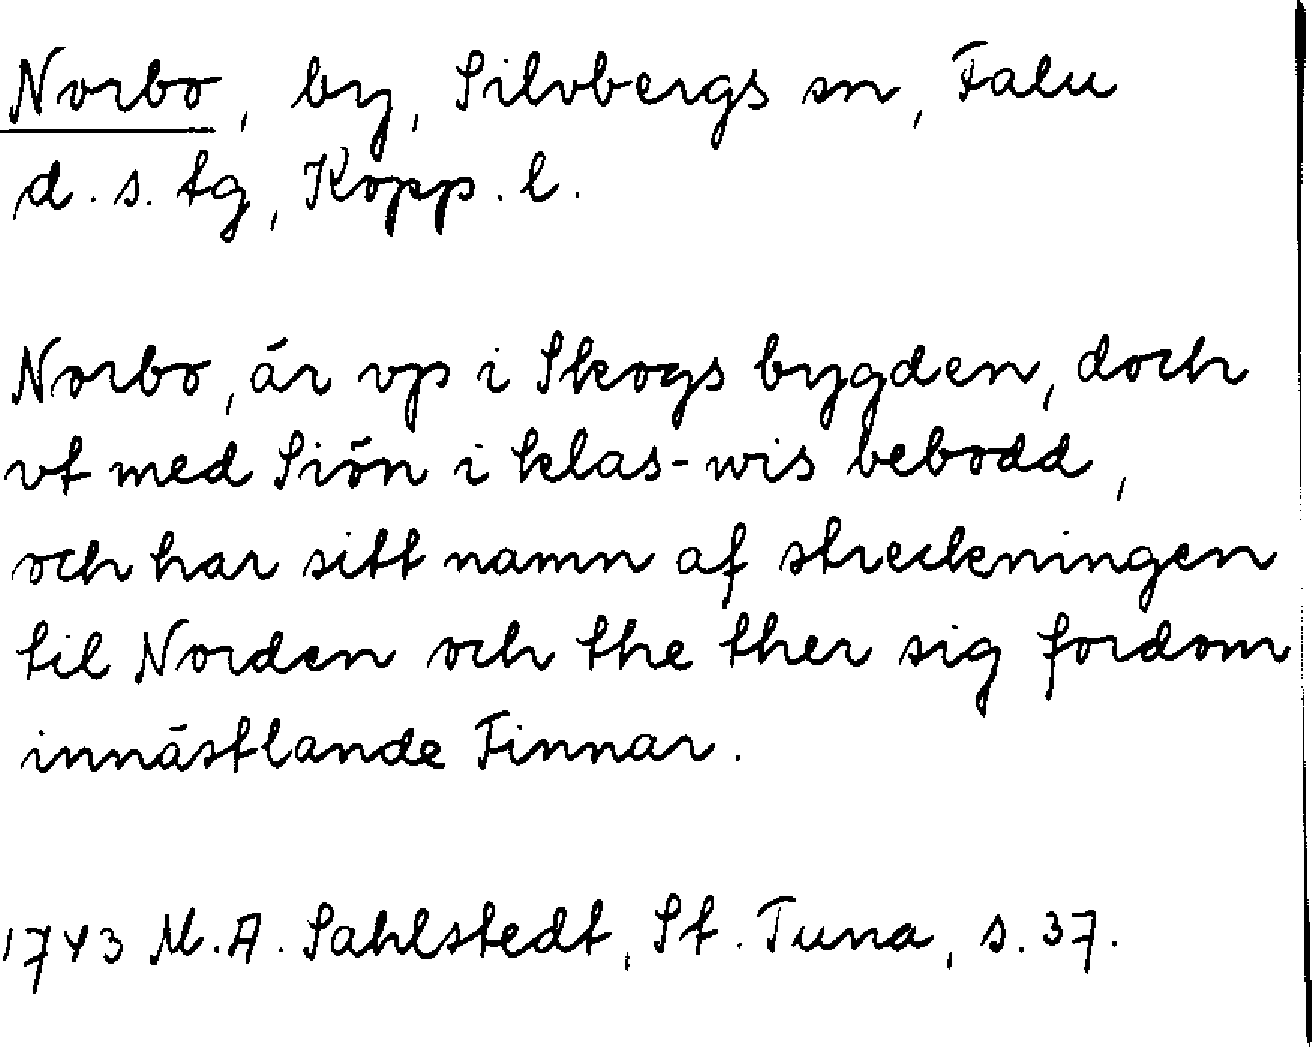 Norbo, by, Silvbergs sn, Falu
d. s. tg, Kopp. l.
Norbo, är vp i Skogs bygden, doch
vt med Siön i klas-wis bebodd,
och har sitt namn af streckningen
til Norden och the ther sig fordom
innästlande Finnar.
1743 M. A. Sahlstedt, St. Tuna, s. 37.